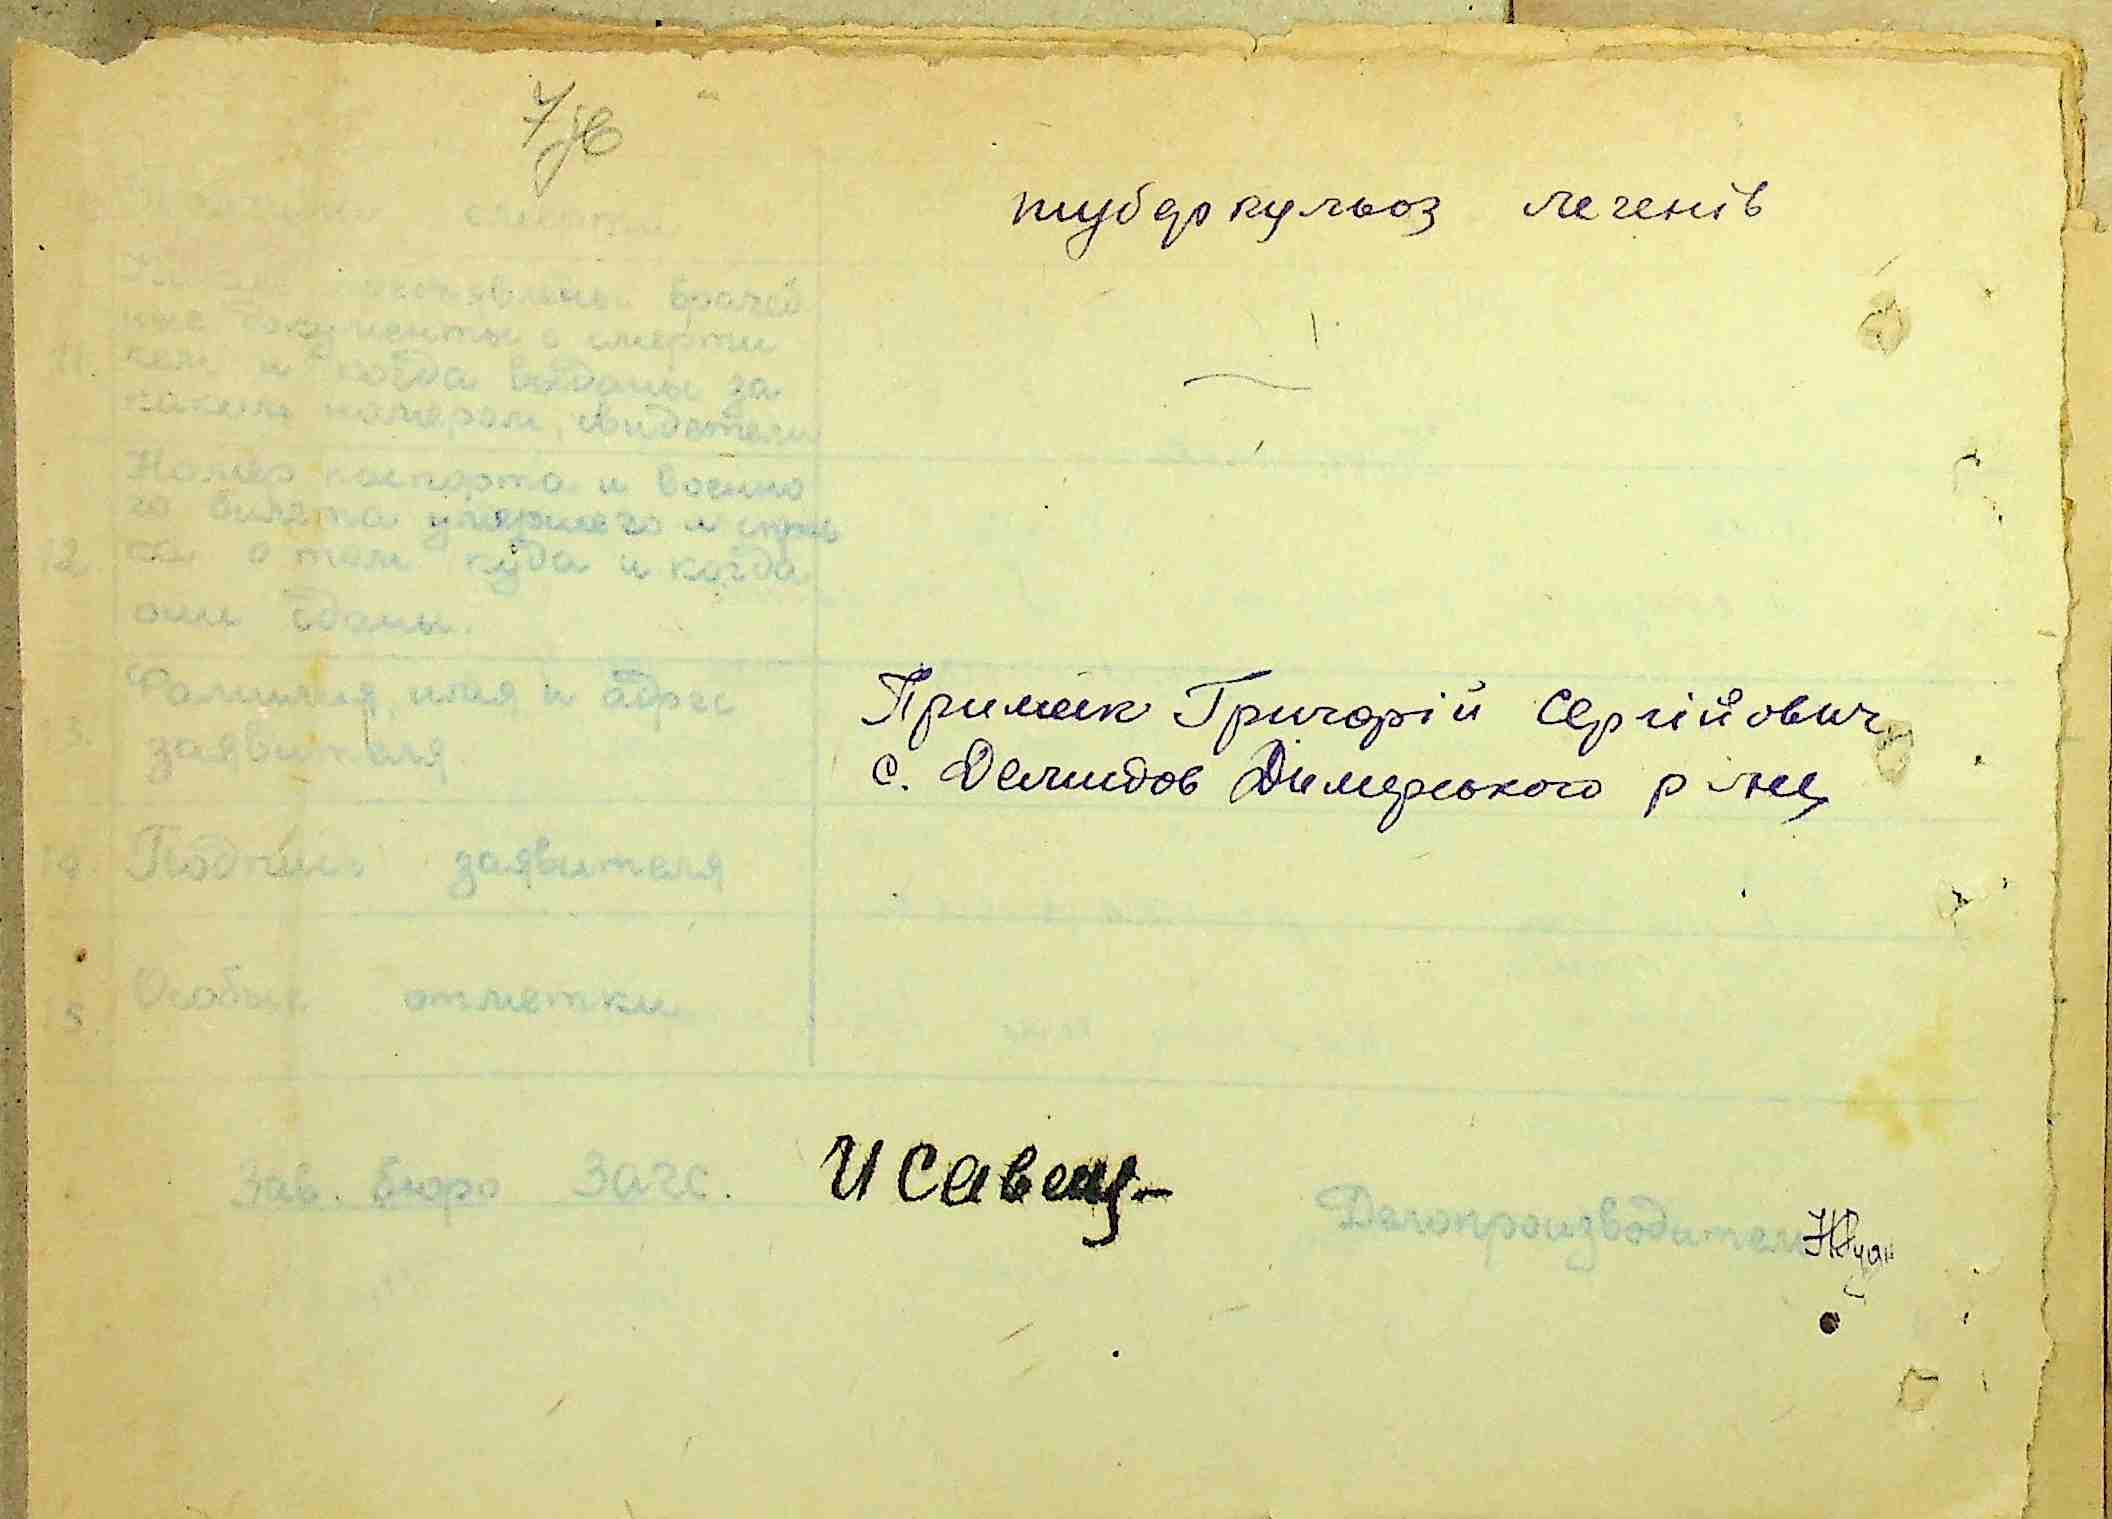 туберкульоз легенів
смерти
врачеб
ные документы о смерти
11. кем и когда выданы за
каким номером, свидетели
Номер паспорта и военно
го билета умершего и
12. о том куда и когда
они сданы.
Фамилия, имя и адрес
заявителя
Примак Григорій Сергійович
с. Демидов Димерського р-ну
14. Подпись заявителя
15. Особые отметки
Зав. бюро Загс. Исавец
Делопроизводитель